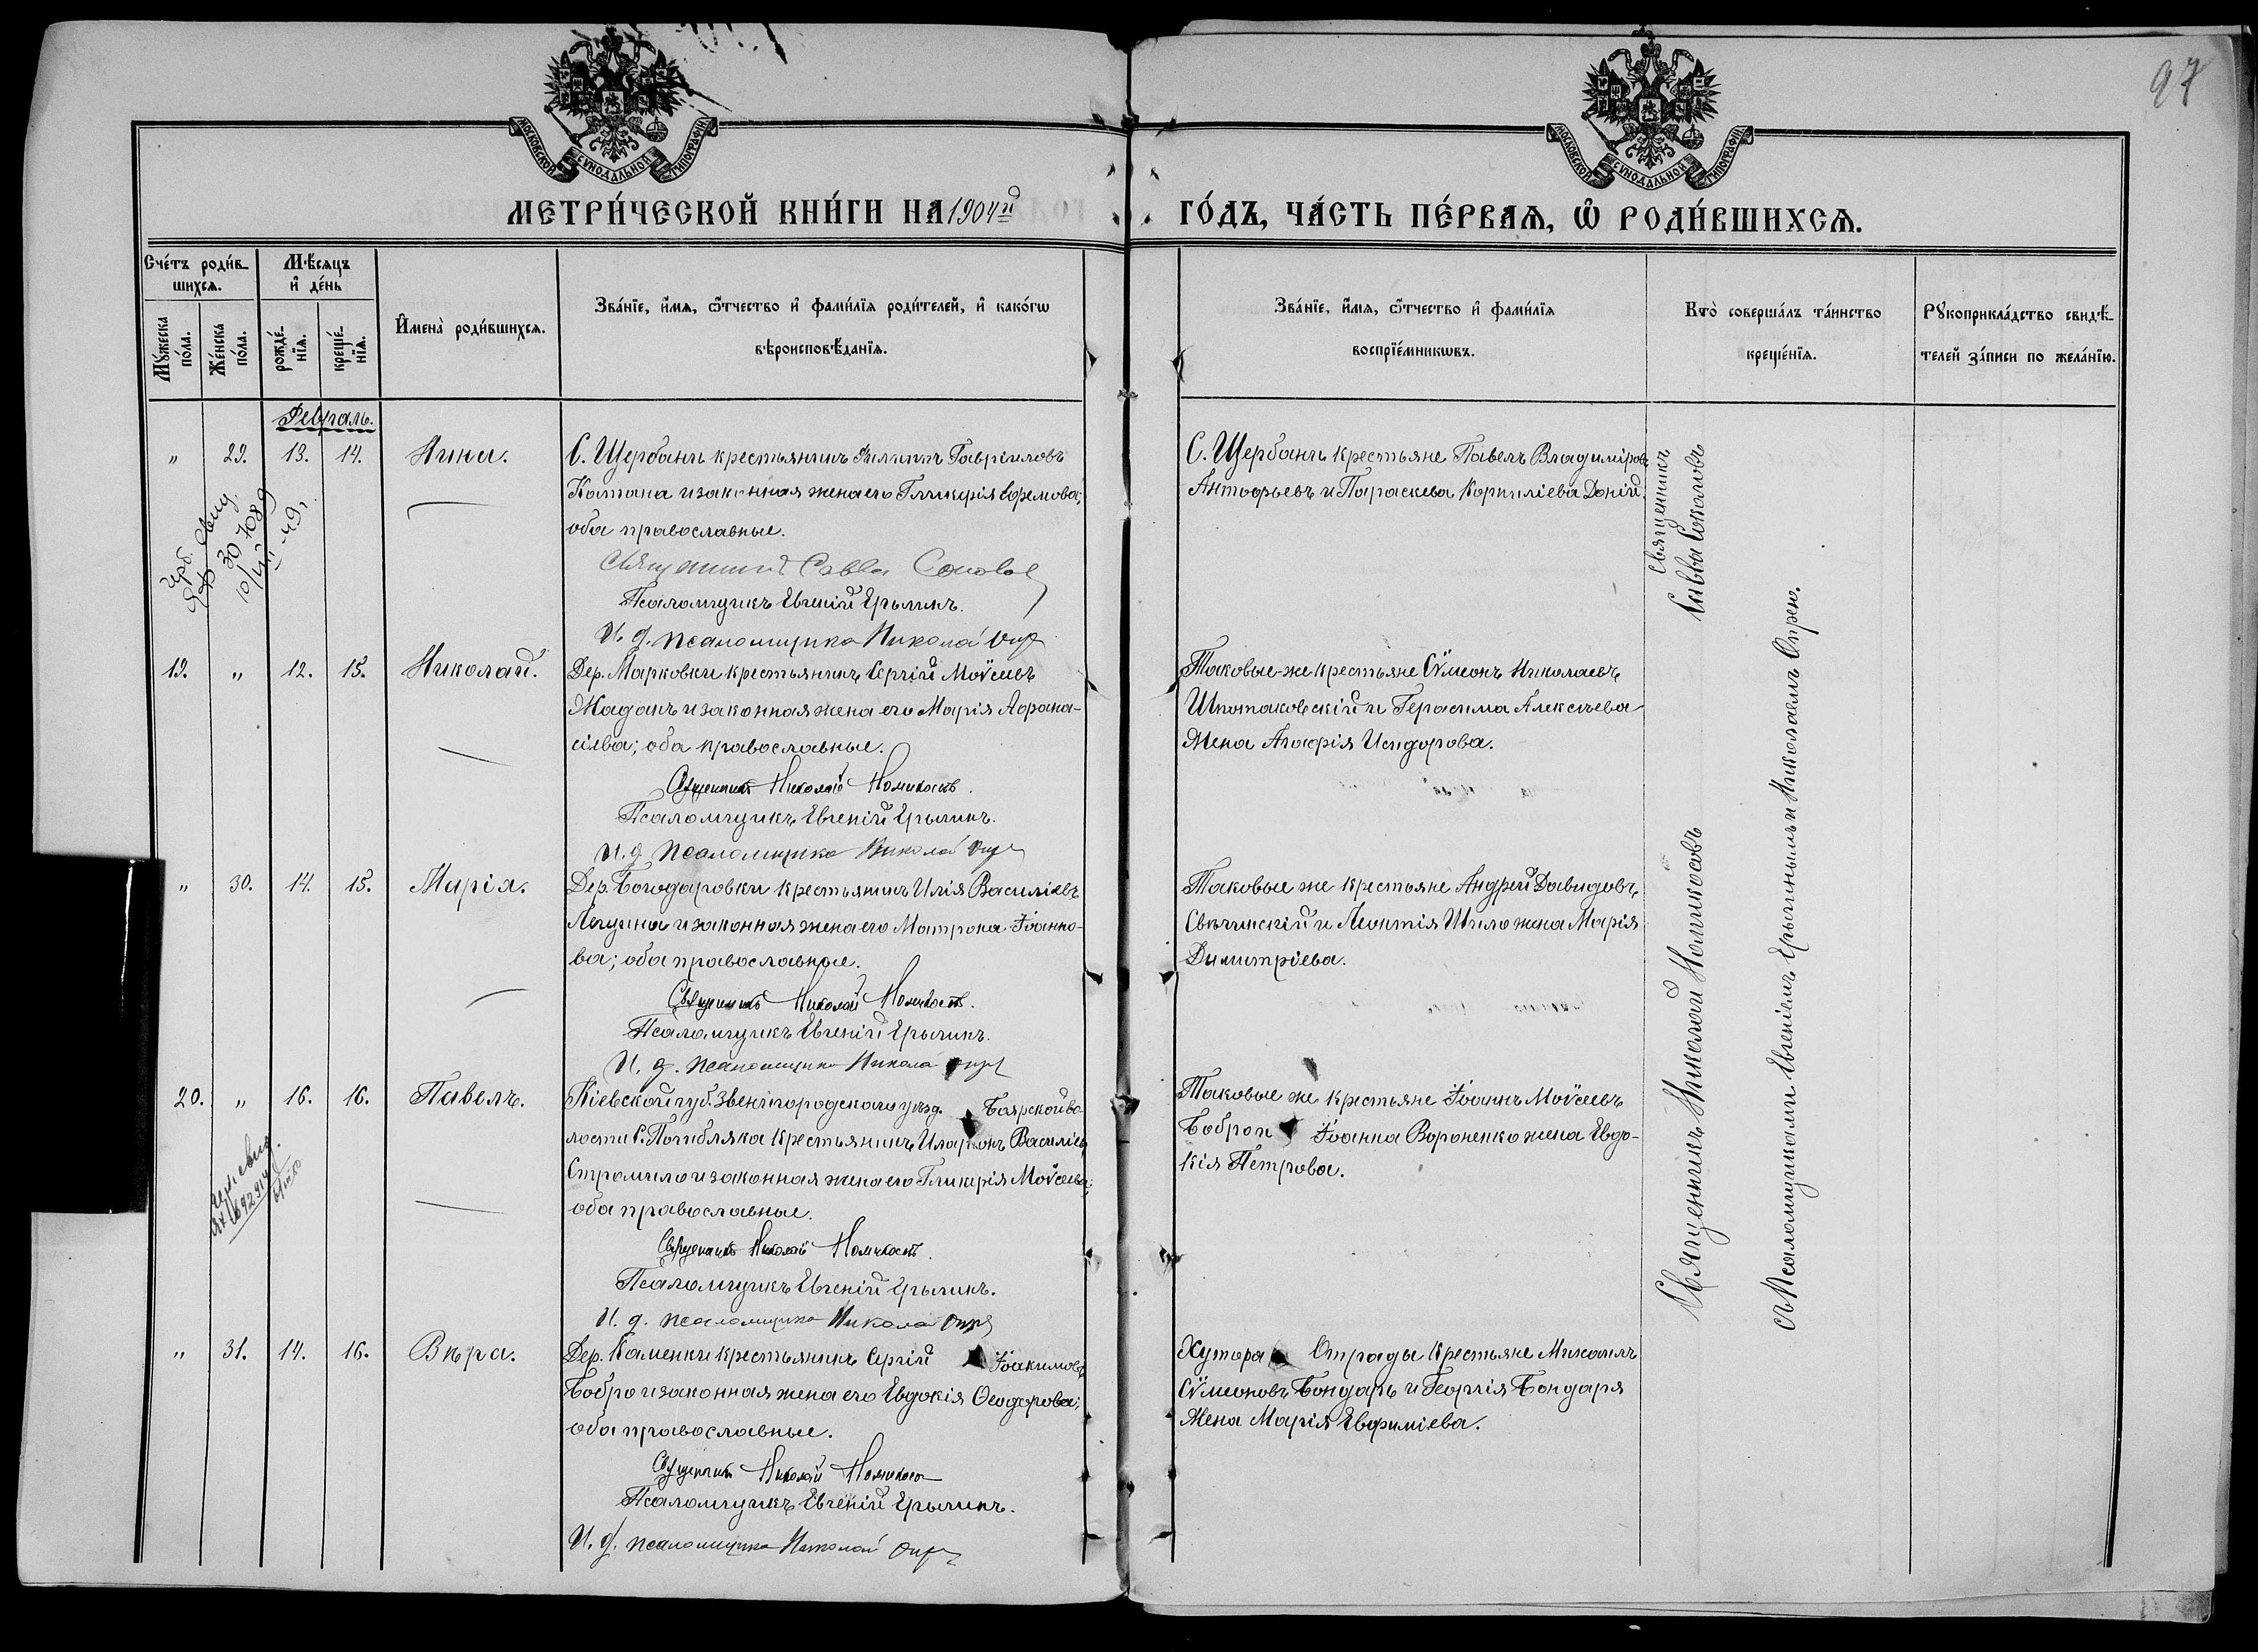 97
МОСКОВСКОЙ СѴНОДАЛЬНОЙ ТИПОГРАФІИ
МОСКОВСКОЙ СѴНОДАЛЬНОЙ ТИПОГРАФІИ
МЕТРИ́ЧЕСКОЙ КНИ́ГИ НА 1904й
ГО́ДЪ, ЧА́СТЬ ПЕ́РВАЯ, Ѡ РОДИ́ВШИХСЯ.
Сче́тъ роди́в-
шихся.
Мѣ́сяцъ
и҆ де́нь
Мꙋ́жеска по́ла.
Же́нска по́ла.
рожде́-
нїя.
креще́-
нїя.
И҆мена̀ роди́вшихся.
Зва́нїе, и҆́мя, ѻ҆́тчество и҆ фами́лїя роди́телей, и҆ како́гѡ
вѣроисповѣ́данїя.
Зва́нїе, и҆́мя, ѻ҆́тчество и҆ фами́лїя
воспрїе́мникѡвъ.
Кто̀ соверша́лъ та́инство
креще́нїя.
Рꙋкоприкла́дство свидѣ́-
телей за́писи по жела́нїю.
Февраль.
" 29. 13. 14. Нина.
С. Щербань крестьянинъ Филиппъ Гавріиловъ
и законная жена его Гликерія Ефремова;
оба православные.
Священникъ Савва Соколов
Псаломщикъ Евгеній Ерылинъ.
И. д. псаломщика Николай
С. Щербань крестьяне Павелъ Владиміровъ
и Параскева Корниліева
Священникъ
Савва Соколовъ
свид.
30 7089
10/VII-49
19. " 12. 15. Николай.
Дер. Марковки крестьянинъ Сергій Моѵсеевъ
Жаданъ и законная жена его Марія Аѳана-
сіева; оба православные.
Священникъ Николай Номикосовъ.
Псаломщикъ Евгеній Ерылинъ.
И. д. псаломщика Николай
Таковые-же крестьяне Сѵмеонъ Николаевъ
и Герасима Алексѣева
жена Агафія Исидорова.
" 30. 14. 15. Марія.
Дер. Богодаровки крестьянинъ Илія Василіевъ
и законная жена его Матрона Іоанно-
ва; оба православные.
Священникъ Николай Номикосовъ.
Псаломщикъ Евгеній Ерылинъ.
И. д. псаломщика Николай
Таковые же крестьяне Андрей Давидовъ
и Леонтія Шило жена Марія
Димитріева.
20. " 16. 16. Павелъ.
Кіевской губ. Звенигородскаго уѣзд. Боярской во-
лости с. Погибляка крестьянинъ Иларіонъ Василіевъ
Стромило и законная жена его Гликерія Моѵсеева;
оба православные.
Священникъ Николай Номикосовъ.
Псаломщикъ Евгеній Ерылинъ.
И. д. псаломщика Николай
Таковые же крестьяне Іоаннъ Моѵсеевъ
Бобро и Іоанна Вороненко жена Евдо-
кія Петрова.
свид.
" 31. 14. 16. Вѣра.
Дер. Каменки крестьянинъ Сергій Іоакимовъ
Бобро и законная жена его Евдокія Ѳеодорова;
оба православные.
Священникъ Николай Номикосовъ
Псаломщикъ Евгеній Ерылинъ.
И. д. псаломщика Николай
Хутора Отрады крестьяне Михаилъ
Сѵмеоновъ Бондарь и Георгія Бондаря
жена Марія Евфиміева.
Священникъ Николай Номикосовъ
съ Псаломщиками Евгеніемъ Ерылинымъ и Николаемъ